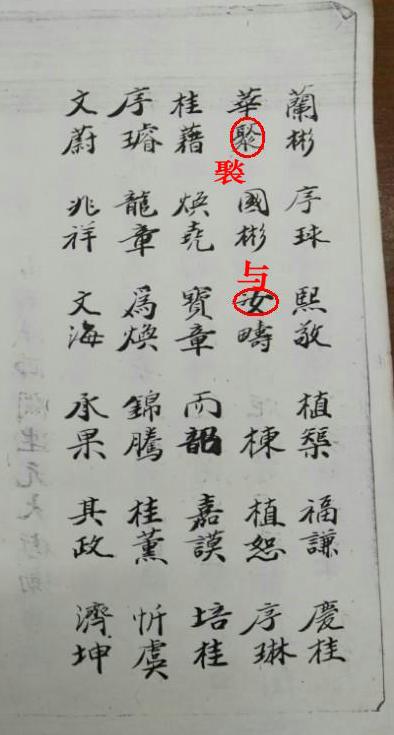 蘭彬 序珠 熙敬 植 福謙 慶桂
華 國彬 汝疇 棟 植恕 序琳
与
桂藉 煥堯 寶章 而韶 嘉謨 培桂
序璿 龍章 爲煥 錦騰 桂薰 忻虞
文蔚 兆祥 文海 承果 其政 濟坤